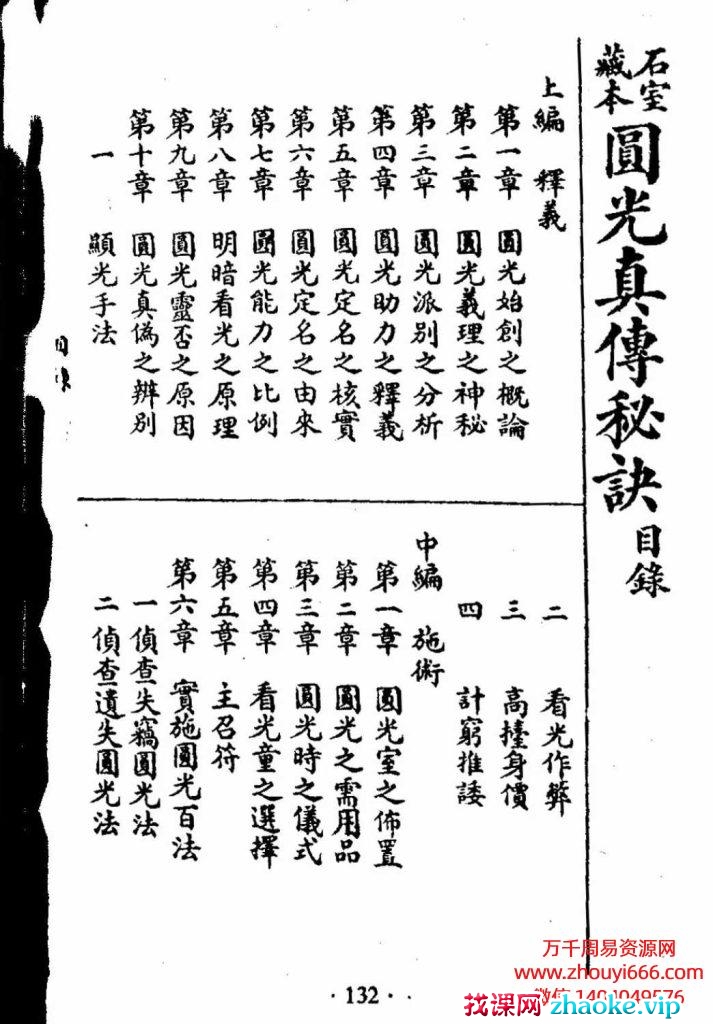 石室藏本圓光真傳秘訣目錄
上編 釋義
第一章 圓光始創之概論
第二章 圓光義理之神秘
第三章 圓光派別之分析
第四章 圓光助力之釋義
第五章 圓光定名之核實
第六章 圓光定名之由來
第七章 圓光能力之比例
第八章 明暗看光之原理
第九章 圓光靈否之原因
第十章 圓光真偽之辨別
一 顯光手法
二 看光作弊
三 高擡身價
四 計窮推諉
中編 施術
第一章 圓光室之佈置
第二章 圓光之需用品
第三章 圓光時之儀式
第四章 看光童之選擇
第五章 主召符
第六章 實施圓光百法
一 偵查失竊圓光法
二 偵查遺失圓光法
目錄
·132·
万千周易资源网
www.zhouyi666.com
找课网 zhaoke.vip